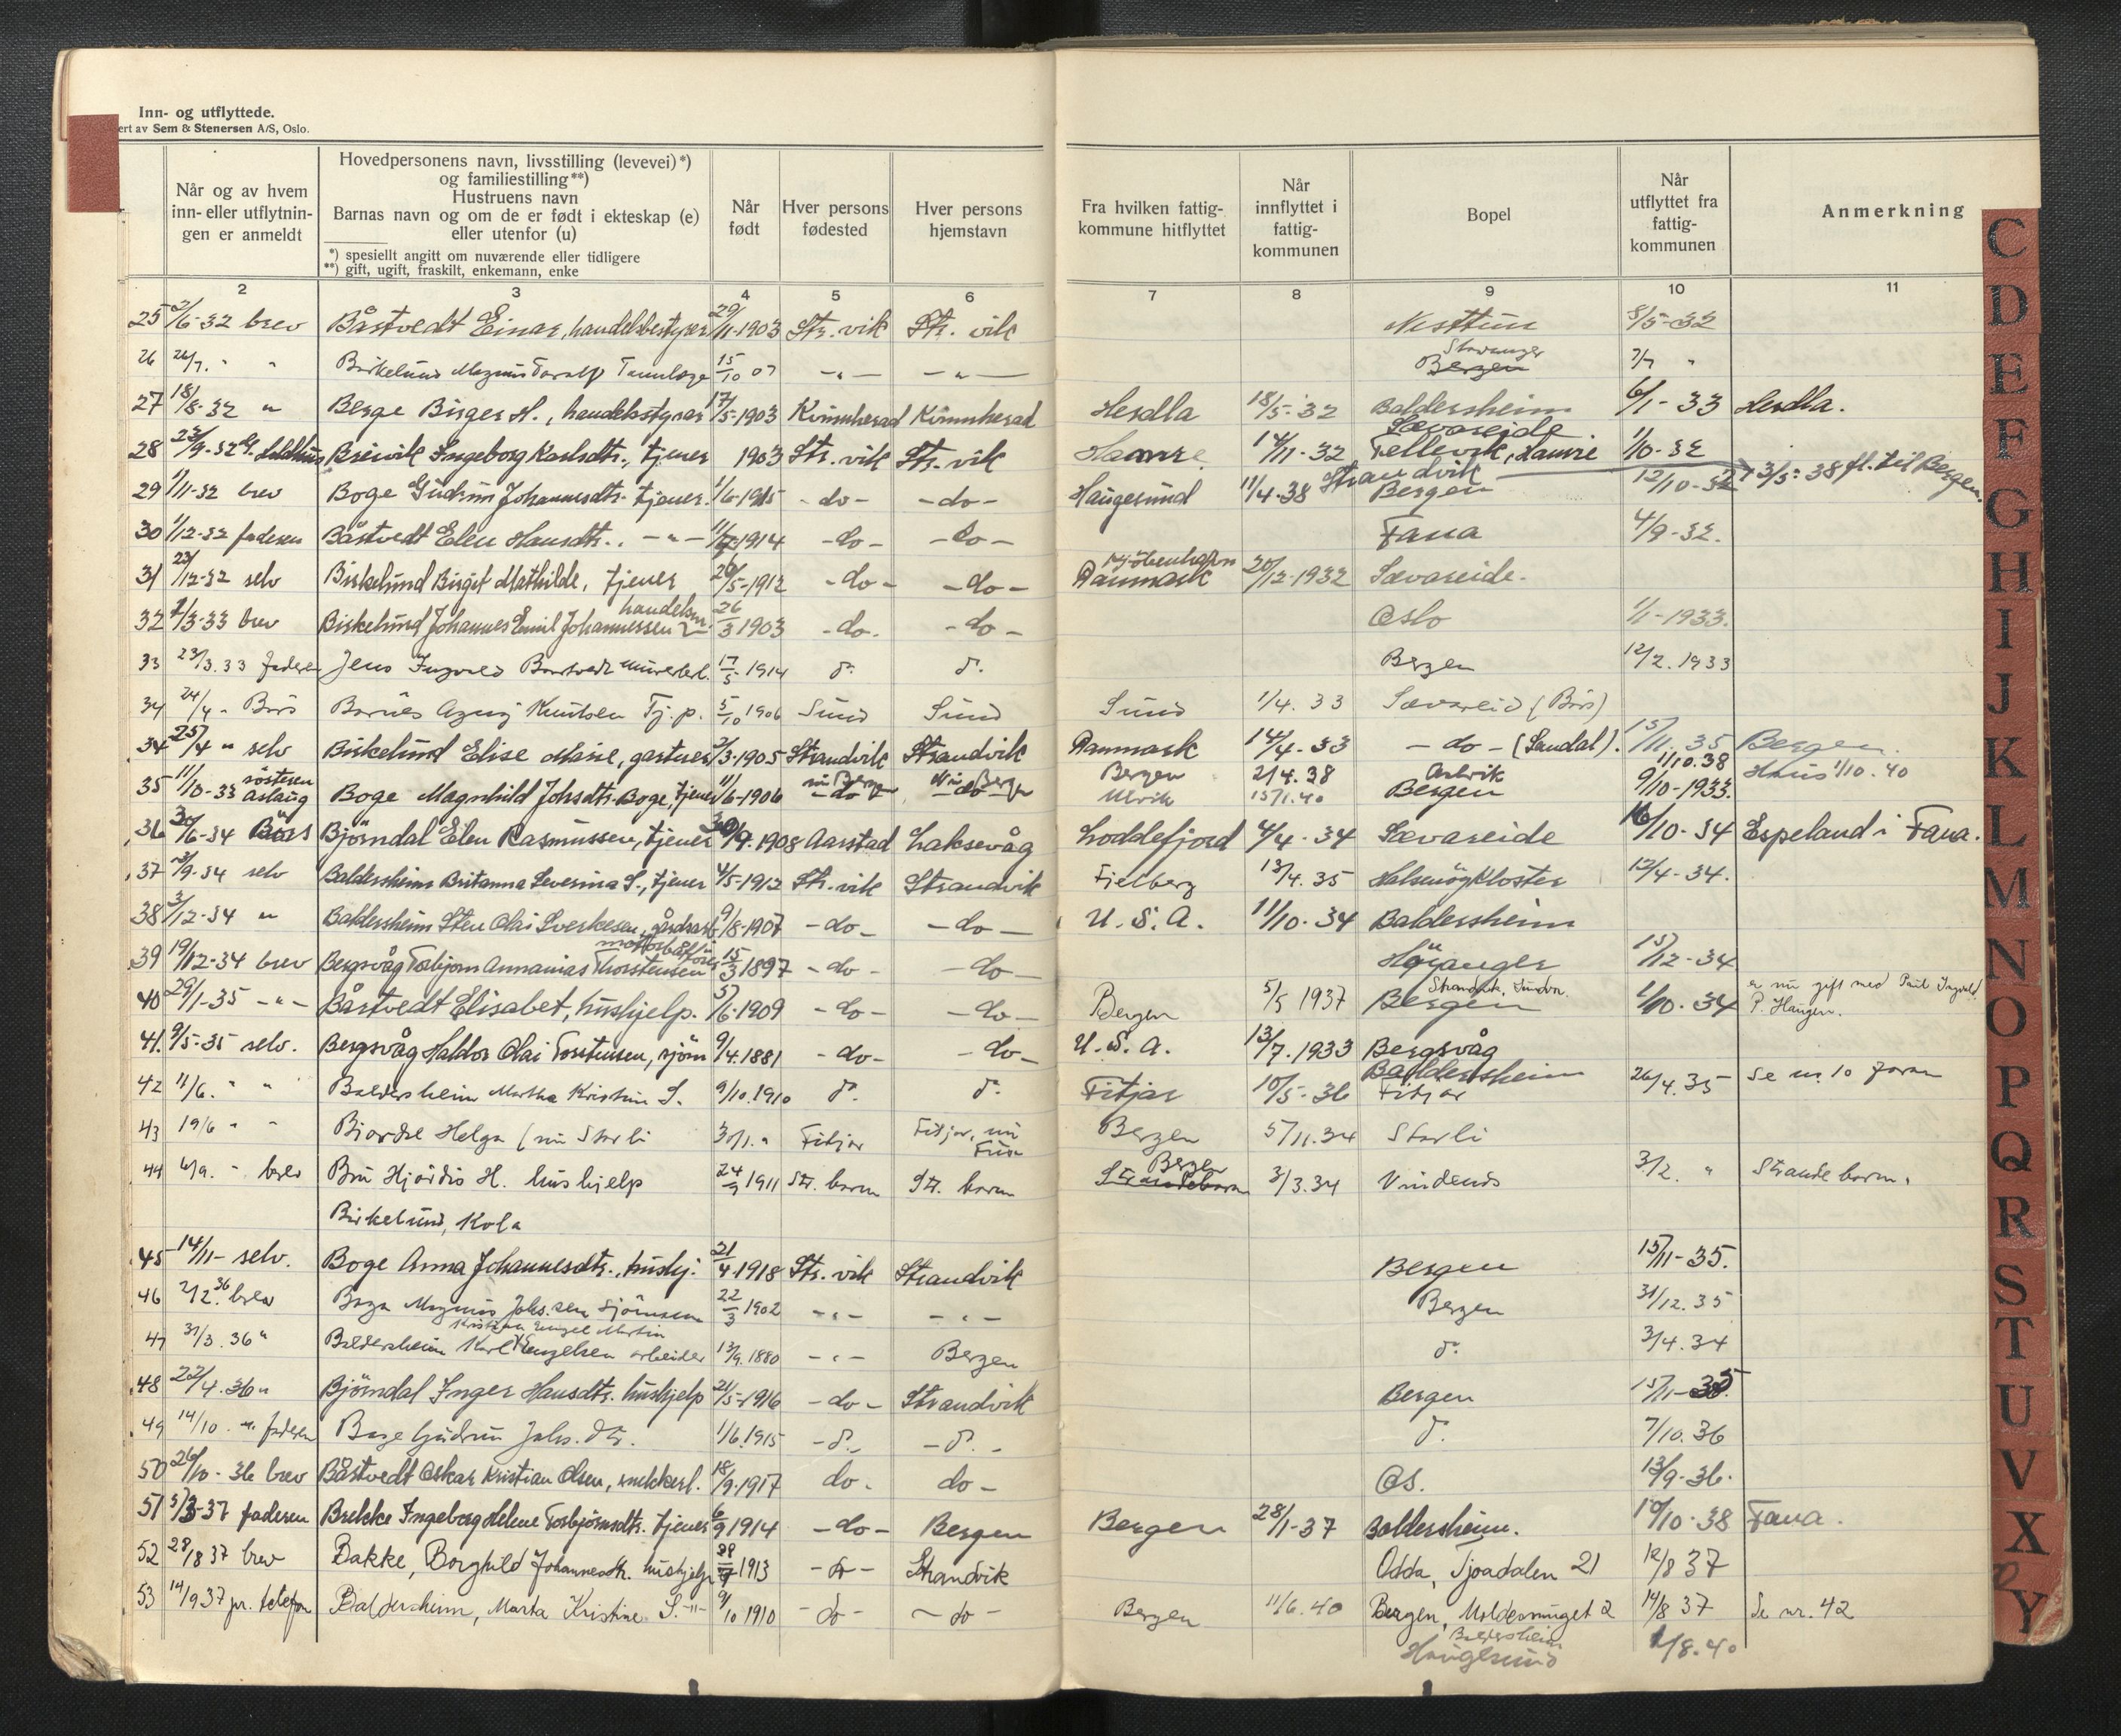 Inn- og utflyttede.
ert av Sem & Stenersen A/S, Oslo.
Når og av hvem inn- eller utflytnin-gen er anmeldt
Hovedpersonens navn, livsstilling (levevei)*)
og familiestilling**)
Hustruens navn
Barnas navn og om de er født i ekteskap (e)
eller utenfor (u)
*) spesiellt angitt om nuværende eller tidligere
**) gift, ugift, fraskilt, enkemann, enke
Når født
Hver persons fødested
Hver persons hjemstavn
Fra hvilken fattig-kommune hitflyttet
Når innflyttet i fattig-kommunen
Bopel
Når utflyttet fra fattig-kommunen
Anmerkning
2 3 4 5 6 7 8 9 10 11
25 2/6-32 brev Båstvedt Einar, handelsbestyrer 29/11-1903 Str.vik Str. vik Nesttun 8/5-32
26 26/7. " " Birkelund Magnus 15/10 07 -"- -"- Stavanger Bergen 7/7 "
27 18/8-32 " Berge Birger H., handelsstyrer 17/5-1903 Kvinnherad Kvinnherad Herdla 18/5-32 Baldersheim 6/1-33 Herdla.
28 23/9-32 Breivik Ingeborg Karlsdtr., tjener 1903 Str. vik Str. vik Hamre 14/11-32 Sævareide Tellevik, Hamre 1/10-32
29 1/11-32 brev Boge Gudrun Johannesdtr. tjener. 1/6-1915 -do- -do- Haugesund 11/4-38 Strandvik Bergen 12/10-32 3/5-38 fl. til Bergen.
30 1/12-32 faderen Båstvedt Elen Hansdtr. -"- 1914 -do- -do- Fana 4/9-32.
31 23/12-32 selv Birkelund Birgit Mathilde, tjener 20/5-1912 -do- -do- Kjöbenhavn Danmark 20/12-1932 Sævareide.
32 1/3-33 brev Birkelund Johannes Emil Johannessen 26/3 1903 -do- -do- Oslo 1/1-1933.
33 23/3.33 faderen Jens Ingvald Baastvedt 17/5-1914 d° d° Bergen 12/2.1933
34 24/4 " Børs Børnes Agnes Knutsen Tj.p. 5/10 1906 Sund Sund Sund 1/4.33 Sævareid (Børs)
34 25/4 " selv Birkelund Elise Marie, gartner 2/3-1905 Strandvik Strandvik Danmark 14/4-33 -do- (Sandal). 15/11.35 Bergen.
35 11/10-33 søsteren Aslaug Boge Magnhild Johsdtr. Boge, tjener 11/6-1906 -do- nu Bergen -do- nu Bergen Bergen 2/4.38 Ulvik 15/1.40 Bergen 11/10.38 9/10-1933. Haus 1/10.40
36 30/6-34 Børs Björndal Elen Rasmussen, tjener 30/9.1908 Aarstad Laksevåg Loddefjord 4/4-34 Sævareide 16/10-34 Espeland i Fana.
37 3/9-34 selv Baldersheim Britanna Severina S., tjener 4/5-1912 Str. vik Strandvik Fjelberg 13/4.35 Halsnøykloster 12/4-34.
38 3/12-34 " Baldersheim Sten Olai Sverkesen, gårdsarb. 9/8-1907 -do- -do- U.S.A. 11/10-34 Baldersheim
39 19/12-34 brev Bergsvåg Torbjørn Annanias Thorstensen motorbåtfører 15/3 1897 -do- -do- Høyanger 15/12-34
40 29/1-35 -"- Båstvedt Elisabet, hushjelp. 5/6-1909 -do- -do- Bergen 5/5 1937 Bergen 1/10-34 er nu gift med Paul Ingvald P. Haugen.
41. 9/5-35 selv. Bergsvåg Haldor Olai Torstensen, sjöm 9/4.1881 -do- -do- U.S.A. 13/7.1933 Bergsvåg
42 11/6. " " Baldersheim Martha Kristine S. 9/10.1910 d° d° Fitjar 10/5-36 Baldersheim Fitjar 26/4.35 Se nr. 10 foran
43 19/6 " " Bjordal Helga (nu Storli 30/1. " Fitjar Fitjar, nu Fusa Bergen 5/11.34 Storli
44 6/9. " brev Bru Hjördis H. hushjelp 24/9 1911 Str. barm Str. barm Bergen Strandebarm 3/3.34 Vindenes 3/2. " Strandebarm.
Birkelund, Kola
45 14/11- selv. Boge Anna Johannesdtr., hushj. 21/4-1918 Str. vik Strandvik Bergen 15/11-35.
46 2/2.36 brev Boge Magnus Johs.sen sjømann 22/3 1902 -"- -"- Bergen 31/12.35
47 31/3.36 " Baldersheim Karl Engelsen arbeider Kristian Engel Martin 13/9.1880 -"- Bergen d° 3/4.34
48 22/4.36 " Björndal Inger Hansdtr. hushjelp 21/5-1916 -do- Strandvik Bergen 15/11-35.
49 14/10 -"- faderen Boge Gudrun Johs.dtr. 1/6.1915 -d°- -d°- d° 7/10.36
50 26/10-36 brev Båstvedt Oskar Kristian Olsen, snekkerl. 18/9-1917 do- do- Os. 13/9-36.
51 3/3-37 faderen Brekke Ingeborg Helene Torbjörnsdtr. tjener 6/9 1914 -do- Bergen Bergen 28/1-37 Baldersheim. 10/10-38 Fana.
52 28/8 37 brev Bakke, Borghild Johannesdtr. hushjelp 1913 -do- Strandvik Odda, Tjoadalen 21 12/8 37
53 14/9 37 pr. telefon Baldersheim, Marta Kristine S. -"- 9/10 1910 -do- -do- Bergen 11/6.40 Bergen, 14/8 37 Se nr. 42
Baldersheim
Haugesund 1/8.40
C
D
E
F
G
H
I
J
K
L
M
N
O
P
Q
R
S
T
U
V
X
Y